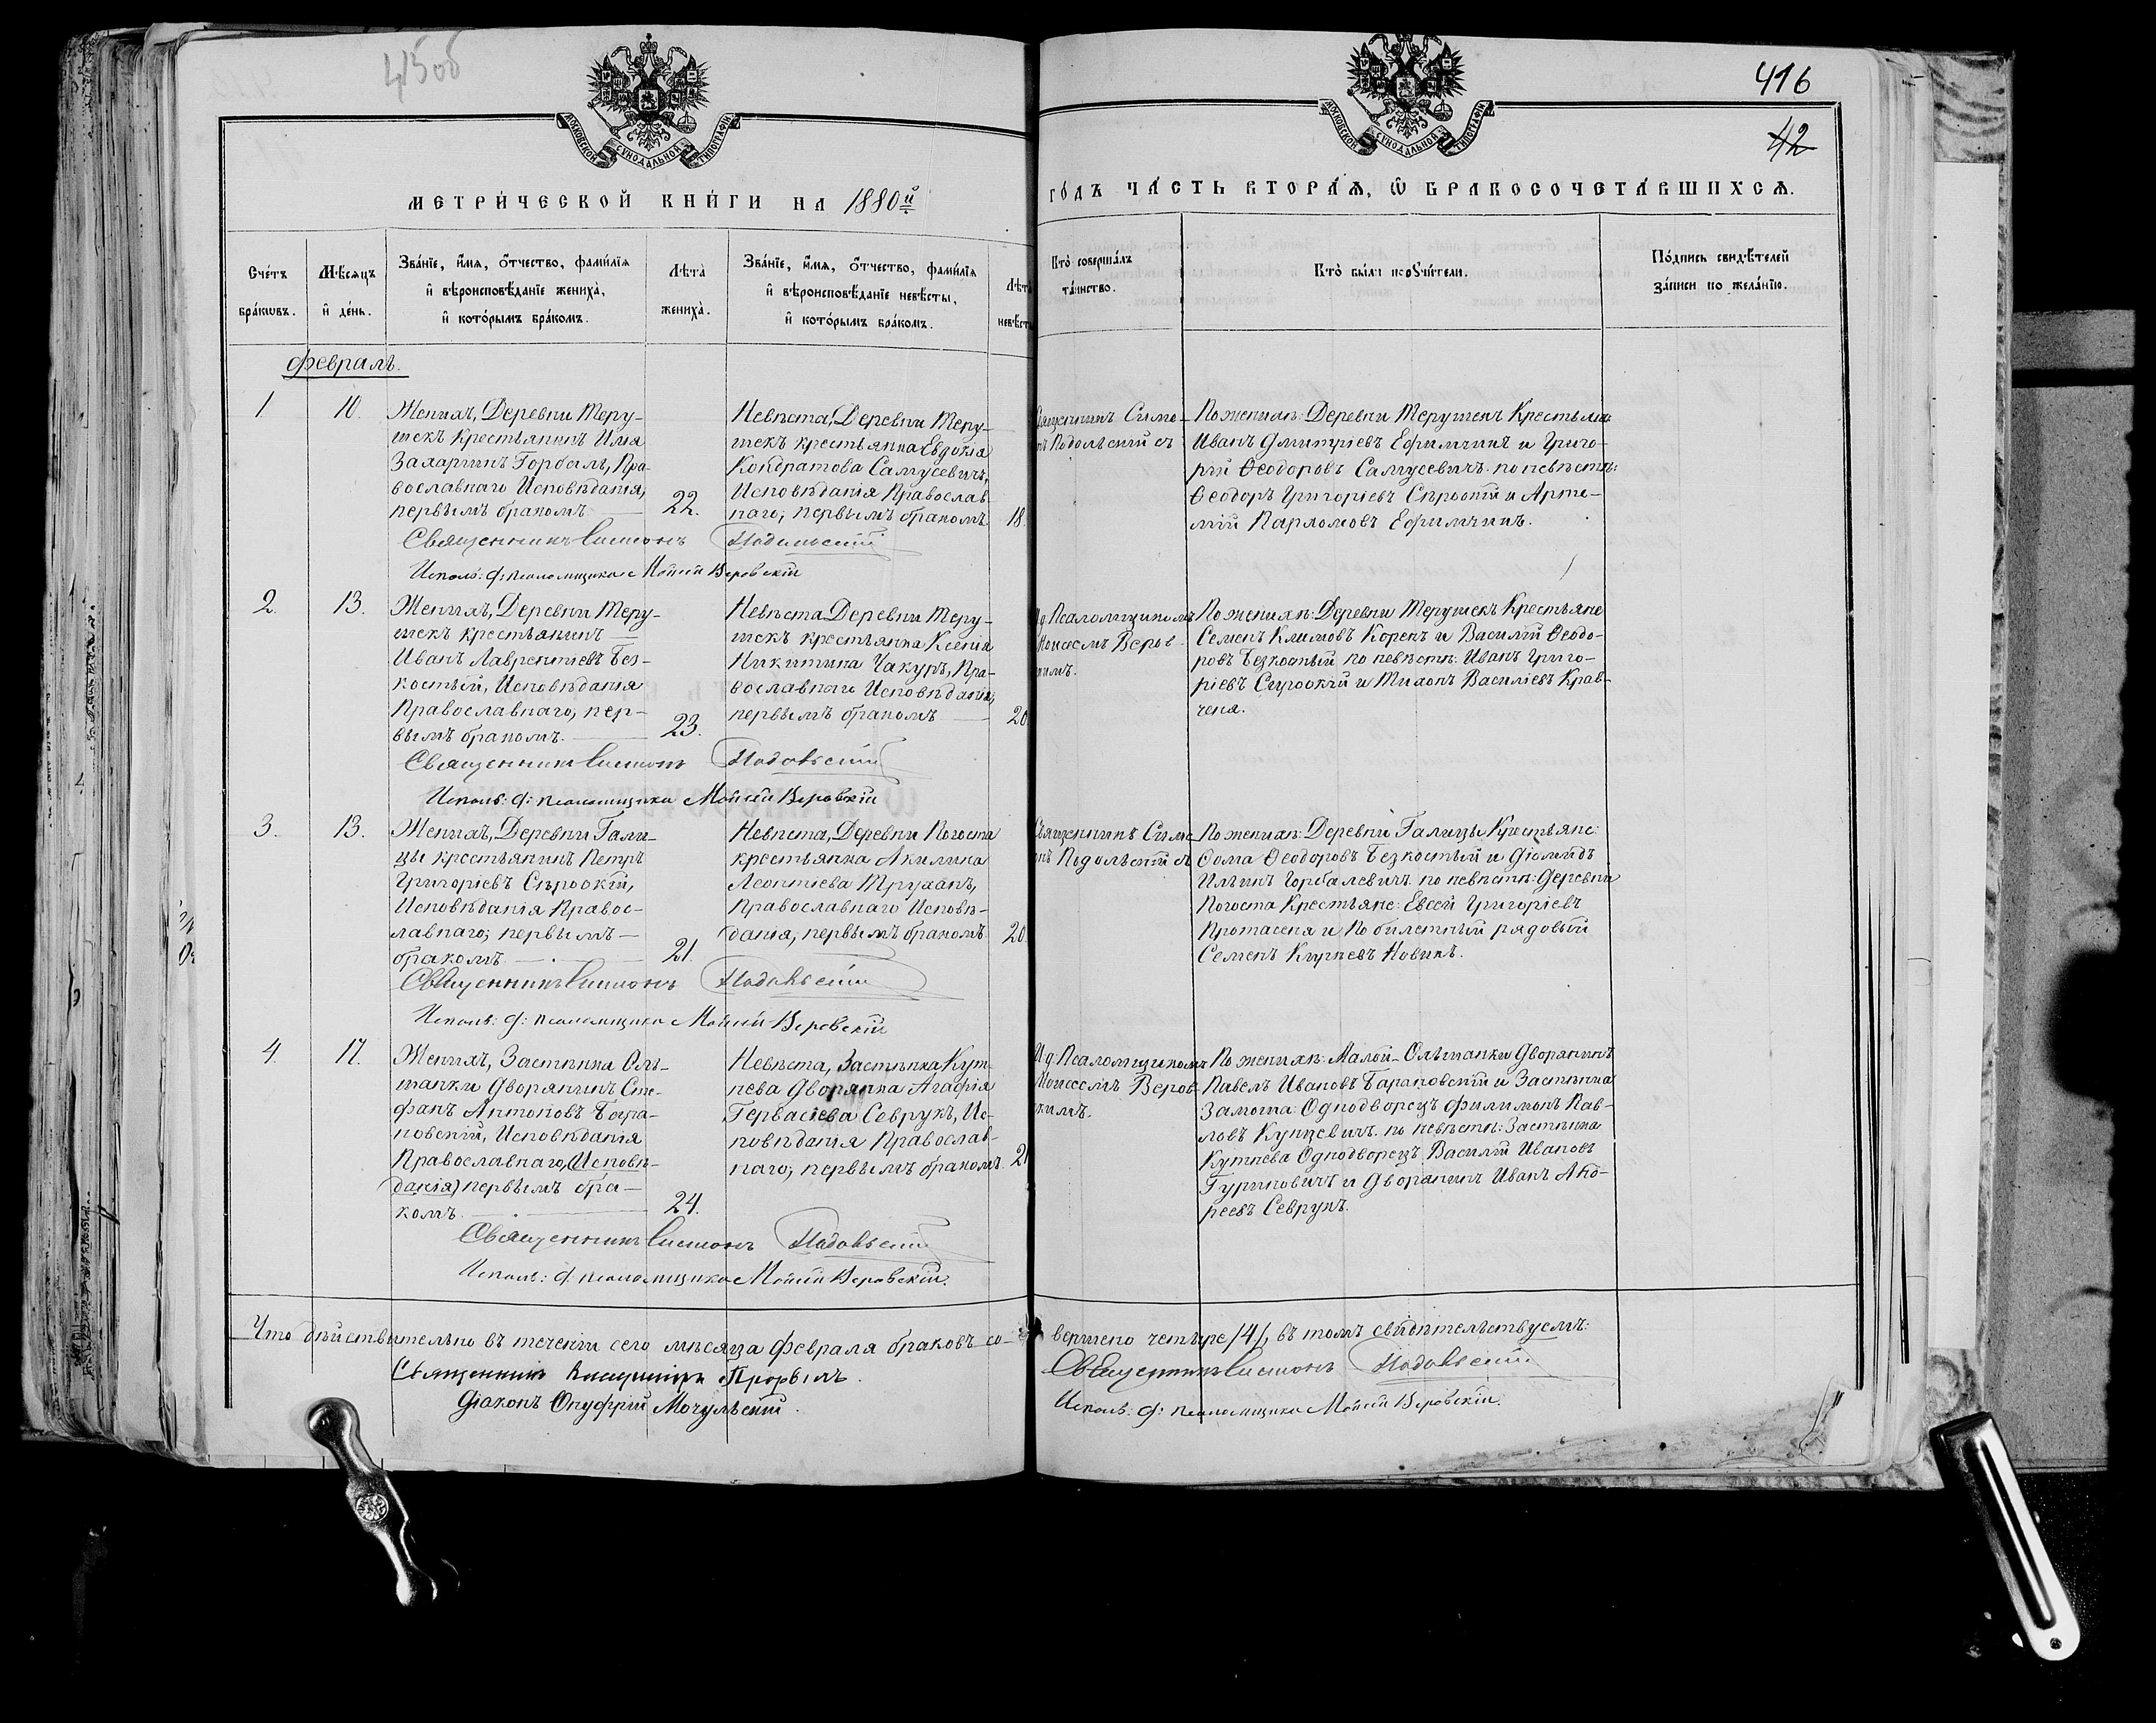 415 об
416
42
МОСКОВСКОЙ СѴНОДАЛЬНОЙ ТИПОГРАФІИ
МОСКОВСКОЙ СѴНОДАЛЬНОЙ ТИПОГРАФІИ
МЕТРИ́ЧЕСКОЙ КНИ́ГИ НА 1880й
ГО́ДЪ ЧА́СТЬ ВТОРА́Ѧ, Ѽ БРАКОСОЧЕТА́ВШИХСѦ.
Сче́тъ
бра́кѡвъ.
Мѣ́сяцъ
и҆ де́нь.
Зва́нїе, и҆́мя, ѻ҆́тчество, фами́лїя
и҆ вѣроисповѣ́данїе жениха̀,
и҆ кото́рымъ бра́комъ.
Лѣ́та
жениха̀.
Зва́нїе, и҆́мя, ѻ҆́тчество, фами́лїя
и҆ вѣроисповѣ́данїе невѣ́сты,
и҆ кото́рымъ бра́комъ.
Лѣ́та
невѣ́сты
Кто̀ соверша́лъ
та́инство.
Кто̀ бы́ли поручи́тели.
По́дпись свидѣ́телей
за́писи по жела́нїю.
Февраль.
1
10.
Женихъ, Деревни Теру-
шекъ крестьянинъ Илья
Захаринъ Горбаль, Пра-
вославнаго Исповѣданія,
первымъ бракомъ
22.
Невѣста, Деревни Теру-
шекъ крестьянка Евдокія
Кондратова Самусевичъ,
Исповѣданія Православ-
наго, первымъ бракомъ.
18.
Священникъ Симе-
нъ Подольскій съ
По женихѣ: Деревни Терушекъ Крестьяне
Иванъ Дмитріевъ Ефимчикъ и Григо-
рій Ѳеодоровъ Самусевичъ. по невѣстѣ:
Ѳеодоръ Григоріевъ Сѣроокій и Арте-
мій Парломовъ Ефимчикъ.
Священникъ Симеонъ Подольскій
Исполъ: д: псаломщика Мойсій Веровскій
2.
13.
Женихъ, Деревни Теру-
шекъ крестьянинъ
Иванъ Лаврентіевъ Без-
костый, Исповѣданія
Православнаго, пер-
вымъ бракомъ.
23.
Невѣста Деревни Теру-
шекъ крестьянка Ксенія
Никитина Чакуръ, Пра-
вославнаго Исповѣданія,
первымъ бракомъ
20.
И д. Псаломщикомъ
Моисеемъ Веров-
кимъ.
По женихѣ: Деревни Терушекъ Крестьяне
Семенъ Климовъ Коренъ и Василій Ѳеодо-
ровъ Безкостый по невѣстѣ: Иванъ Григо-
ріевъ Сѣроокій и Тихонъ Василіевъ Крав-
ченя.
Священникъ Симеонъ Подольскій
Исполъ: д: псаломщика Мойсій Веровскій
3.
13.
Женихъ, Деревни Гали-
цы крестьянинъ Петръ
Григоріевъ Сѣроокій,
Исповѣданія Правос-
лавнаго, первымъ
бракомъ
21.
Невѣста, Деревни Погоста
крестьянка Акилина
Леонтіева Труханъ,
Православнаго Исповѣ-
данія, первымъ бракомъ
20.
Священникъ Симе
нъ Подольскій съ
По женихѣ: Деревни Галицы Крестьяне:
Ѳома Ѳеодоровъ Безкостый и Діомидъ
Ильинъ Горбалевичъ. по невѣстѣ: Деревни
Погоста Крестьяне: Евсей Григоріевъ
Протасеня и По билетный рядовый
Семенъ Новикъ.
Священникъ Симеонъ Подольскій
Исполъ: д: псаломщика Мойсій Веровскій
4.
17.
Женихъ, Застѣнка Оль-
шанки Дворянинъ Сте-
фанъ Антоновъ Бара-
новскій, Исповѣданія
Православнаго, (Исповѣ-
данія) первымъ бра-
комъ
24.
Невѣста, Застѣнка Кут-
нева Дворянка Агафія
Гервасіева Севрукъ, Ис-
повѣданія Православ-
наго, первымъ бракомъ.
21
И д. Псаломщикомъ
Моисеемъ Веров-
кимъ.
По женихѣ: Малой-Ольшанки Дворянинъ
Павелъ Ивановъ Барановскій и Застѣнка
Замоша: Однодворецъ Филимонъ Пав-
ловъ Кунцевичъ. по невѣстѣ: Застѣнка
Кутнева Однодворецъ Василій Ивановъ
Гуриновичъ и Дворянинъ Иванъ Анд-
реевъ Севрукъ.
Священникъ Симеонъ Подольскій
Исполъ: д: псаломщика Мойсій Веровскій.
Что дѣйствительно въ теченіи сего мѣсяца февраля браковъ со-
вершено четыре /4/, въ томъ свидѣтельствуемъ:
Священникъ Прорвичъ.
Діаконъ Онуфрій Мочульскій.
Священникъ Симеонъ Подольскій
Исполъ: д: псаломщика Мойсій Веровскій.